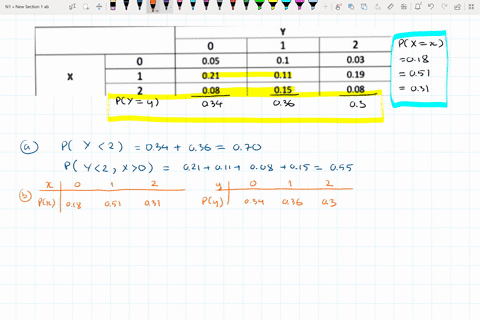 N1 • New Section 1 ab
Y
0 1 2
P(X=x)
X 0 0.05 0.1 0.03 =0.18
1 0.21 0.11 0.19 =0.51
2 0.08 0.15 0.08 =0.31
P(Y=y) 0.34 0.36 0.3
(a) P(Y<2) = 0.34 + 0.36 = 0.70
P(Y<2, X>0) = 0.21 + 0.11 + 0.08 + 0.15 = 0.55
(b) x 0 1 2 y 0 1 2
P(x) 0.18 0.51 0.31 P(y) 0.34 0.36 0.3